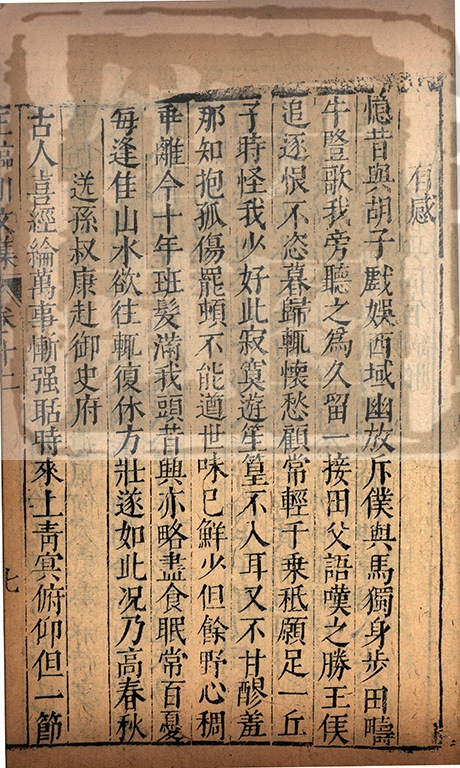 有感
憶昔與胡子戲娛西域幽放斥僕與馬獨身步田疇
牛豎歌我旁聽之為久留一接田父語嘆之勝王侯
追逐恨不恣暮歸輒懷愁顧常輕千乗秪願足一丘
子時怪我少好此寂寞遊笙篁不入耳又不甘醪羞
那知抱孤傷罷頓不能遒世味已鮮少但餘野心稠
乖離今十年班髮滿我頭昔興亦略盡食眠常百憂
每逢佳山水欲往輒復休方壯遂如此况乃高春秋
送孫叔康赴御史府
古人喜經綸萬事慚强聒時來上青冥俯仰但一節
王臨川文集 卷十二
七